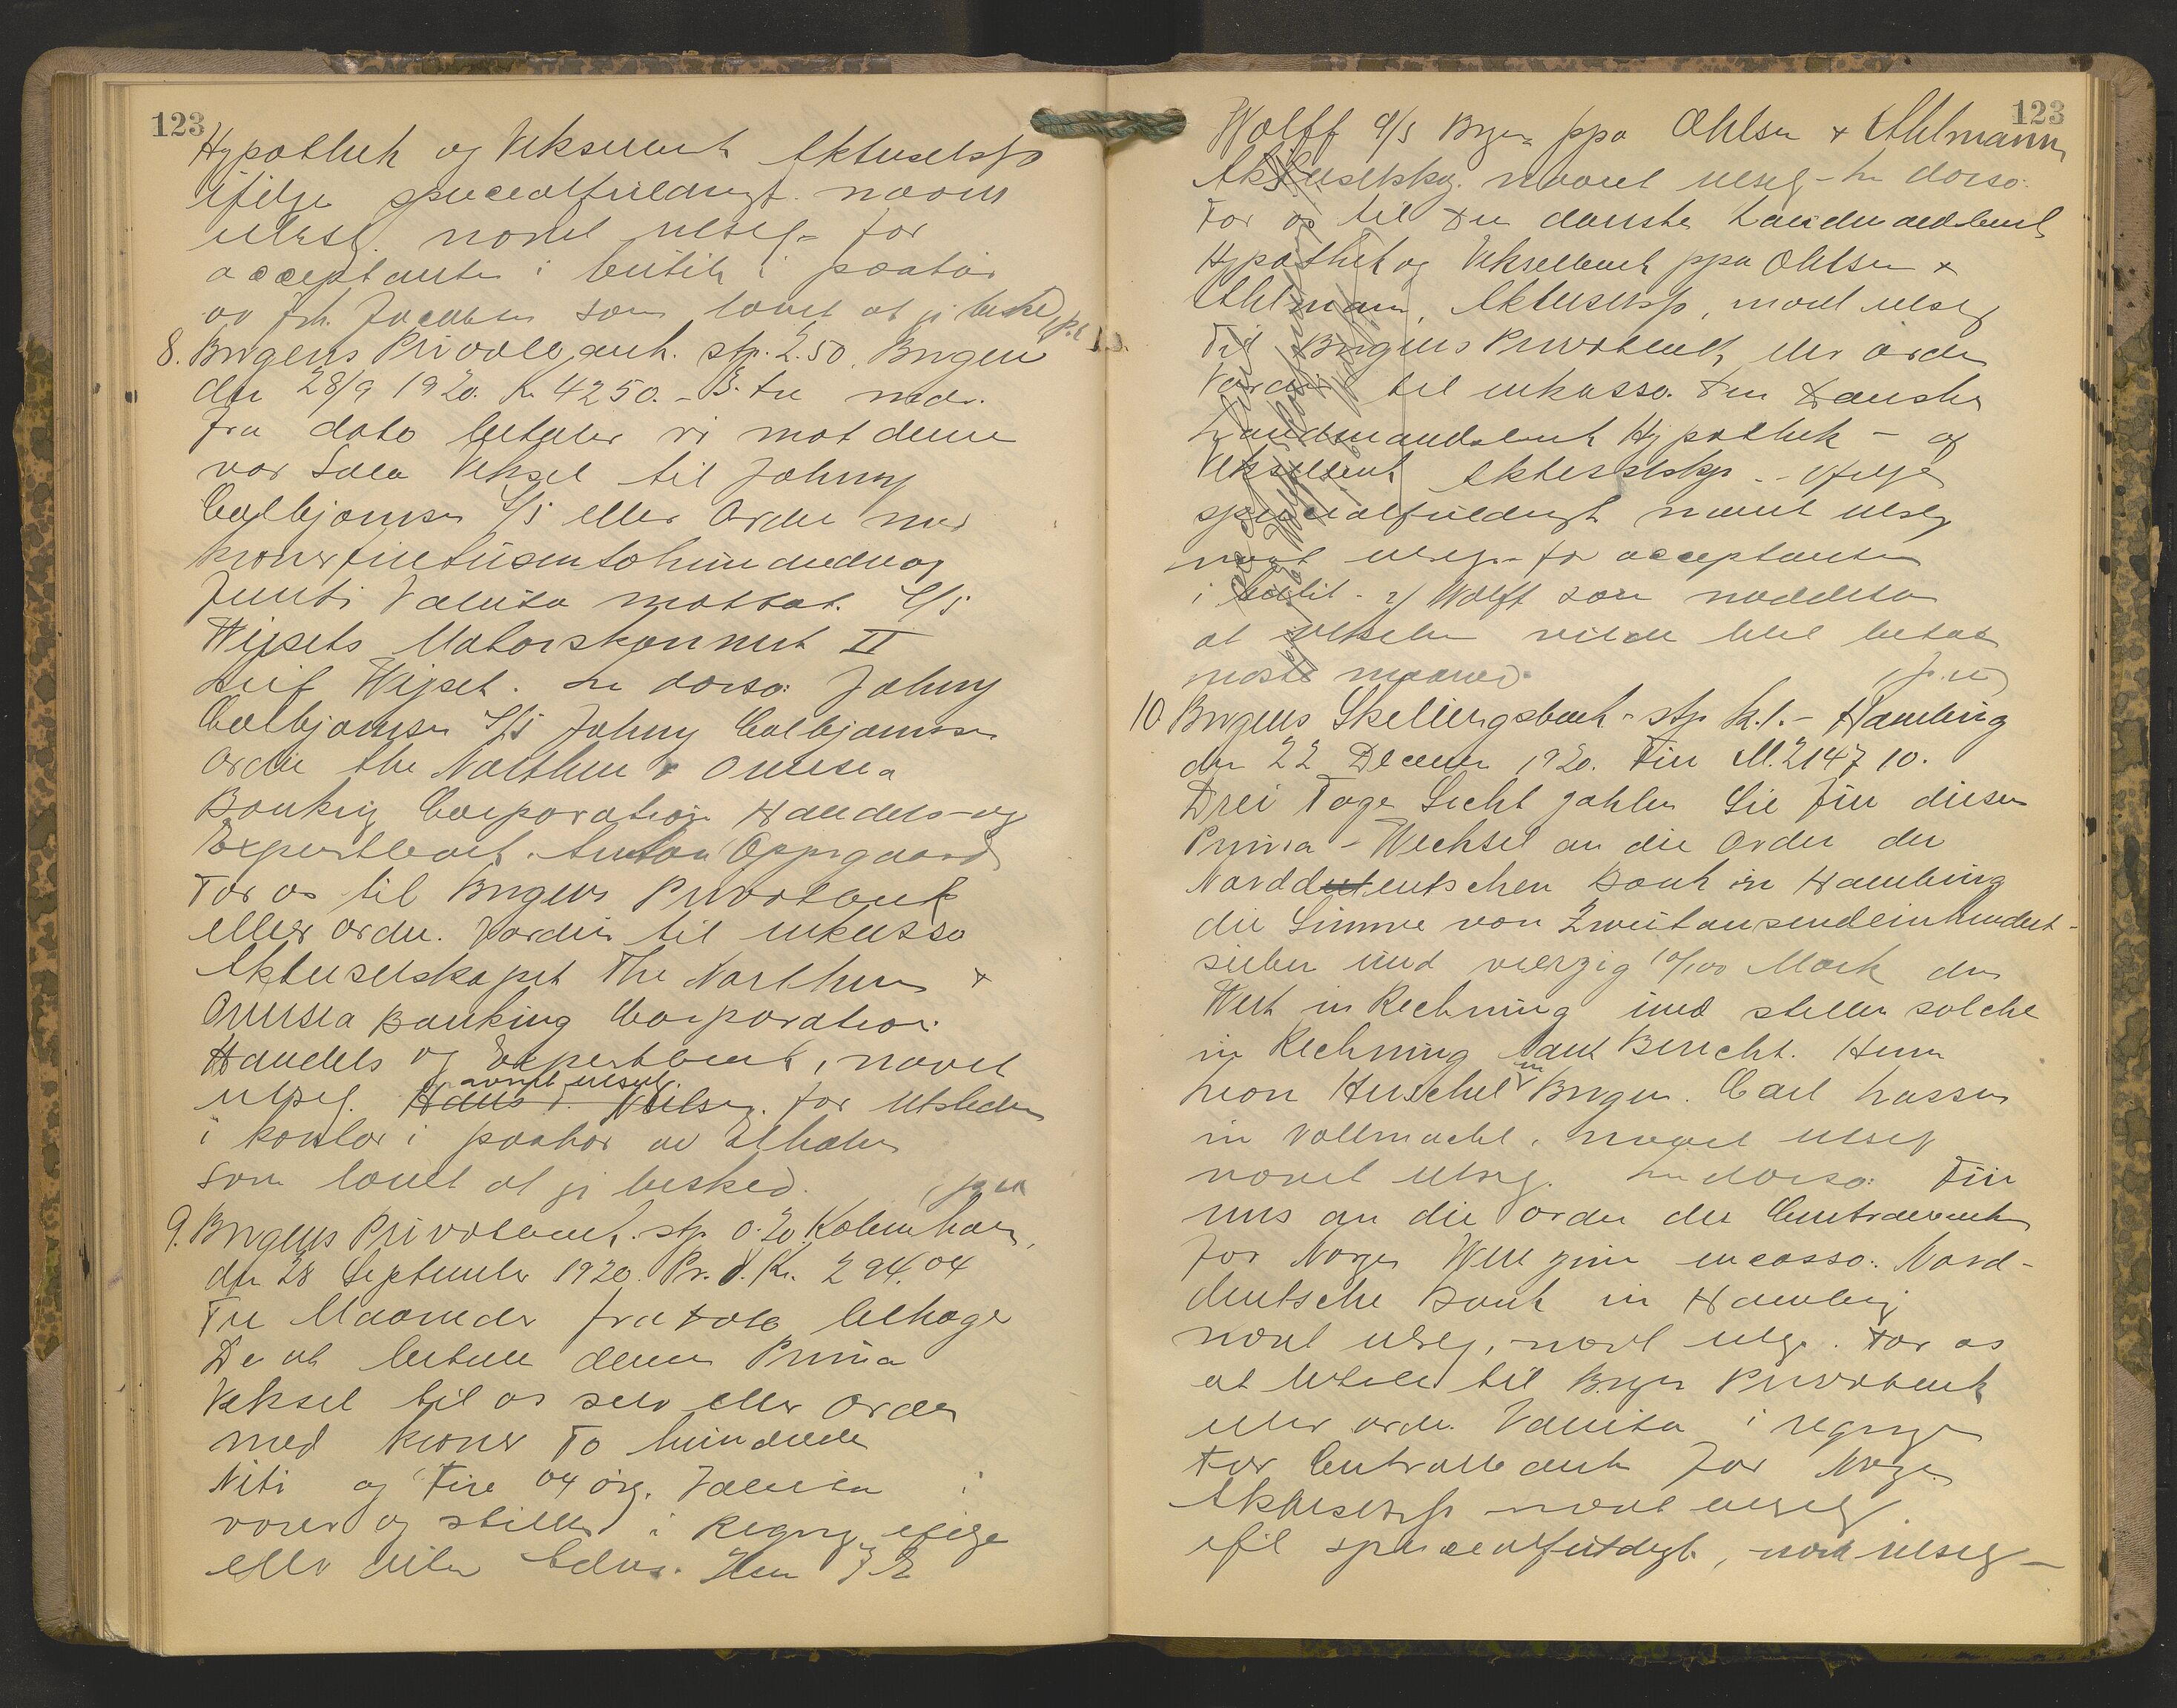 123
Hypothek og Vekselbank Aktieselsk
ifølge specialfuldmagt. navn
utlæsel. navnet utlæsel for
acceptanten i butik i paahør
av frk. Jacobsen som lovet at gi besked
8. Bergens Privatbank. stp. 2.50. Bergen
den 28/9 1920. Kr 4250.- 3. tre mdr.
fra dato betaler vi mot denne
vor Sola Veksel til Johny
Colbjørnsen A/S eller Ordre med
kroner firetusentohundredeog
femti Valuta mottat. A/S
Wigsets Motorskonnert II
Leif Wigset. In dorso: Johny
Colbjørnsen A/S Johny Colbjørnsen
Ordre the Northern & Oversea
Banking Corporation Handels- og
Exportbank. Anton Oppegaard
For os til Bergens Privatbank
eller ordre. Værdien til inkasso
Aktieselskapet The Northern &
Oversea Banking Corporation
Handels og Exportbank, navnet
utlæsel. for Utstederen
i kontor i paahør av
som lovet at gi besked.
9. Bergens Privatbank. stp. 0.20. Kobenhavn,
den 28 September 1920. Pr. d. Kr. 294.04
Tre Maaneder fra Dato behager
De at betale denne Prima
Veksel til os selv eller Ordre
med kroner To hundrede
Niti og Fire 04 øre. Valuta i
varer og stilles i Regning ifølge
eller uden Advis. Herr J. E
123
Wolff A/S Bergen ppa Ohlsen & Ahlmann
Aktieselskap. navnet utlæsel - In dorso:
For os til Den danske Landmandsbank
Hypothek og Vekselbank ppa Ohlsen &
Ahlmann, Aktieselsk, navnet utlæsel
Til Bergens Privatbank eller ordre
Værdien til inkasso. Den Danske
Landmandsbank Hypothek - og
Vekselbank Aktieselskap - ifølge
specialfuldmagt navnet utlæsel
navnet utlæsel for acceptanten
i butik - v/ Wolff som meddelte
at vekselen vilde blive betalt
næste maaned.
10. Bergens Skillingsbank - stp. k. 1.- Hamburg
den 22 Decemer 1920. Für M. 2147 10.
Drei Tage Sicht zahlen Sie für diesen
Prima - Wechsel an die Order der
Norddeutschen Bank in Hamburg
die Summe von Zweitausendeinhundert-
sieben und vierzig 10/100 Mark den
Wert in Rechnung und stellen solche
in Rechnung laut Bericht. Herrn
Leon Herschel in Bergen. Carl Lassen
in Vollmacht. navnet utlæsel
navnet utlæsel. In dorso: Für
uns an die Order der Centralbanken
for Norge Wert zum incasso: Nord-
deutsche Bank in Hamburg
navnet utlæsel, navnet utlæsel. For os
at betale til Bergens Privatbank
eller ordre. Valuta i regning
For Centralbanken for Norge
Aktieselsk navnet utlæsel
ifølge specialfuldmagt, navnet utlæsel -